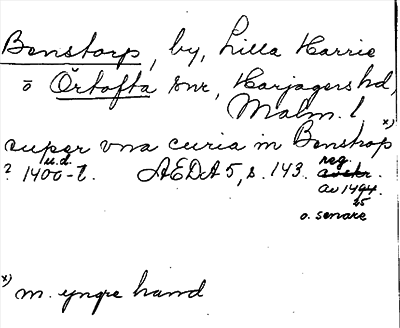 Benstorp, by, Lilla Harrie
o Örtofta snr, Harjagers hd,
Malm. l x)
super vna curia in Benstrop
? 1400-t. u.d. AEDA 5, s. 143. reg.
av 1494.
25
o. senare
x) m. yngre hand